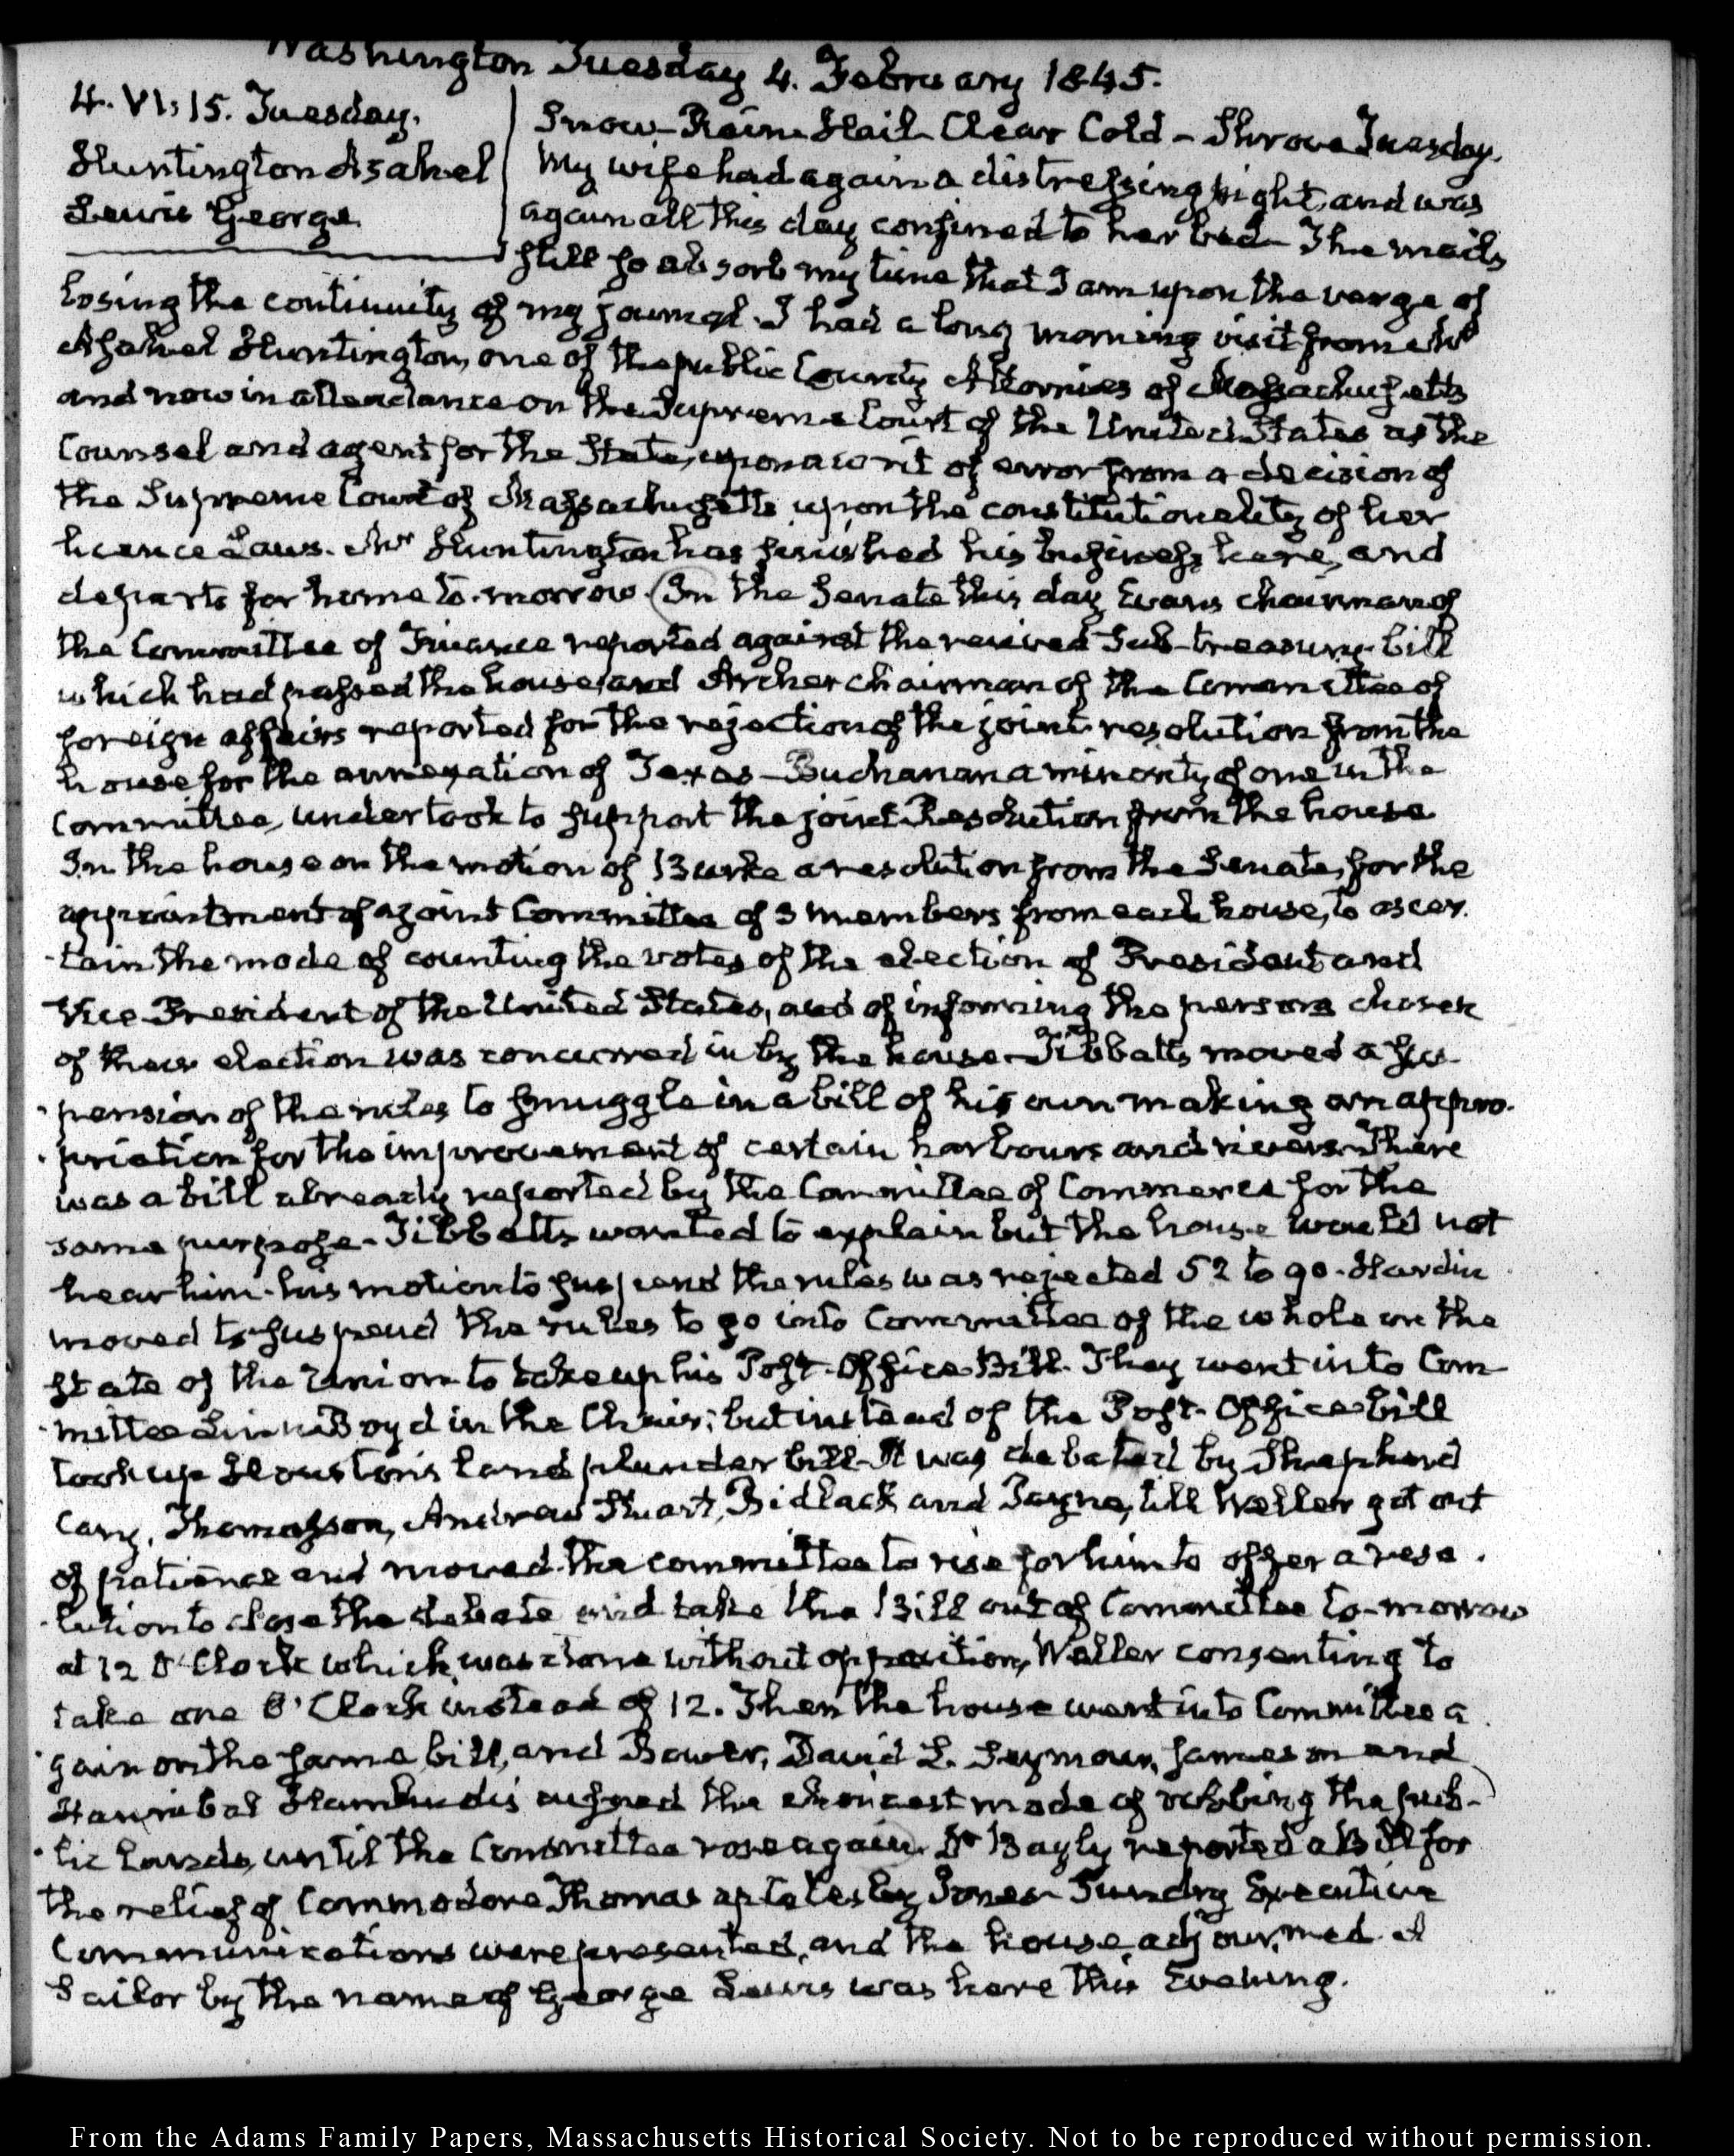 Washington Tuesday 4. February 1845.
4. VI:15. Tuesday.
Huntington Asahel
Lewis George
Snow- Rain- Hail- Clear Cold- Shrove Tuesday.
My wife had again a distressing night, and was
again all this day confined to her bed- The mails
still so absorb my time that I am upon the verge of
losing the continuity of my journal. I had a long morning visit from Mr
Asahel Huntington, one of the public County Attornies of Massachusetts
and now in attendance on the Supreme Court of the United States as the
Counsel and agent for the State, upon a writ of error from a decision of
the Supreme Court of Massachusetts upon the constitutionality of her
licence Laws. Mr Huntington has finished his business here, and
departs for home to-morrow. (In the Senate this day Evans chairman of
the Committee of Finance reported against the revived Sub-treasury bill
which had passed the house, and Archer chairman of the Committee of
foreign affairs reported for the rejection of the joint resolution from the
house for the annexation of Texas- Buchanan a minority of one in the
Committee, undertook to support the joint Resolution from the house
In the house on the motion of Burke a resolution from the Senate, for the
appointment of a joint Committee of 3 members from each house, to ascer-
-tain the mode of counting the votes of the election of President and
Vice-President of the United States, and of informing the persons chosen
of their election was concurred in by the house- Tibbatts moved a sus-
-pension of the rules to smuggle in a bill of his own making an appro-
-priation for the improvement of certain harbours and rivers- There
was a bill already reported by the Committee of Commerce for the
same purpose- Tibbatts wanted to explain but the house would not
hear him- his motion to suspend the rules was rejected 52 to 90- Hardin
moved to suspend the rules to go into Committee of the whole on the
state of the Union to take up his Post-Office Bill. They went into Com-
-mittee Linn Boyd in the Chair; but instead of the Post-Office bill
took up Houston's land plunder bill- It was debated by Shepherd
Cary, Thomasson, Andrew Stuart, Bidlack and Payne, till Weller got out
of patience and moved the committee to rise for him to offer a reso-
-lution to close the debate and take the Bill out of Committee to-morrow
at 12 O'Clock which was done without opposition, Weller consenting to
take one O'Clock instead of 12. Then the house went into Committee a-
-gain on the same bill, and Bower, David L. Seymour, Jameson and
Hannibal Hamlin discussed the choicest mode of robbing the pub-
-lic lands, until the Committee rose again. Dr Bayly reported a Bill for
the relief of Commodore Thomas ap Catesby Jones- Sundry Executive
Communications were presented, and the house adjourned. A
Sailor by the name of George Lewis was here this Evening.
From the Adams Family Papers, Massachusetts Historical Society. Not to be reproduced without permission.